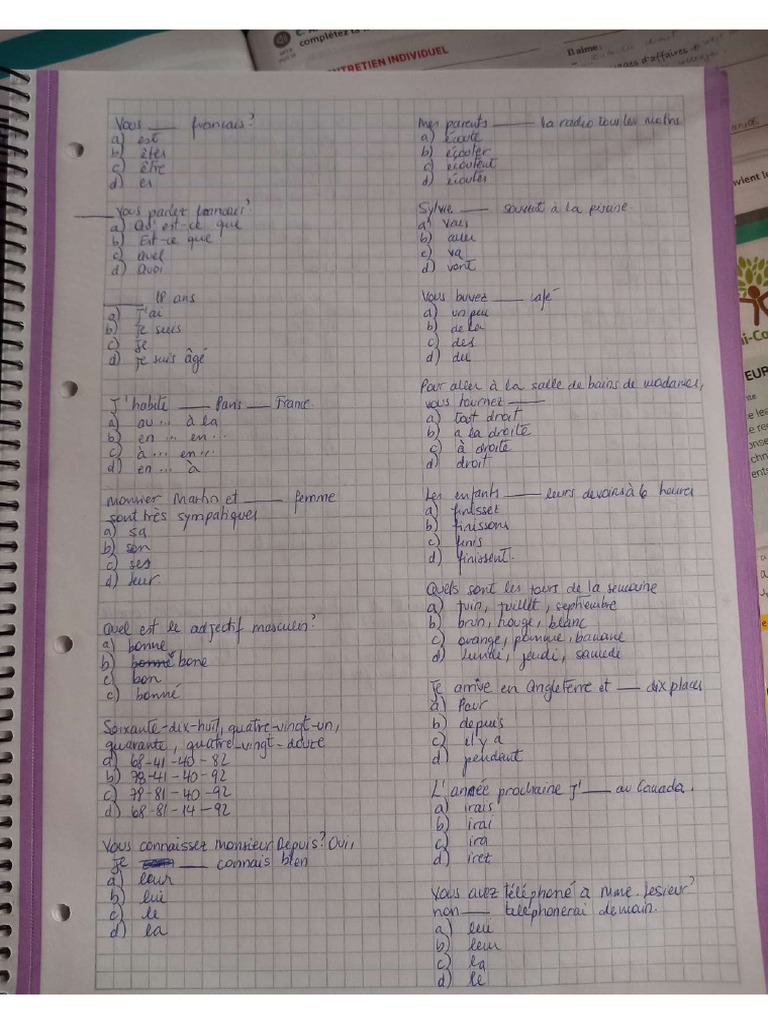 complétez la
ENTRETIEN INDIVIDUEL
Dalme:
d'affaires
Vous ___ francais?
a) est
b) êtes
c) être
d) es
___ Vous parlez francais?
a) Qu'est-ce que
b) Est-ce que
c) quel
d) Quoi
___ 18 ans
a) J'ai
b) Je suis
c) Je
d) Je suis âgé
J'habite ___ Paris ___ France.
a) au... à la
b) en ... en...
c) à ... en...
d) en ... à
monsier Martin et ___ femme
sont très sympatiques
a) sa
b) son
c) ses
d) leur
Quel est le adjectif masculin?
a) bonne
b) bone
c) bon
c) bonné
Soixante-dix-huit, quatre-vingt-un,
quarante, quatre-vingt-douze
a) 68-41-40-82
b) 78-41-40-92
c) 78-81-40-92
d) 68-81-14-92
Vous connaissez monsieur Depuis? Oui,
Je ___ connais bien
a) leur
b) lui
c) le
d) la
Mes parents ___ la radio tous les matins
a) écoute
b) écouter
c) écoutent
d) écoutes
Sylvie ___ souvent à la piscine.
a) vais
b) aller
c) va
d) vont
Vous buvez ___ café
a) un peu
b) de la
c) des
d) du
Pour aller à la salle de bains de madames,
vous tournez ___
a) tout droit
b) a la droite
c) à droite
d) droit
Les enfants ___ leurs devoirs à 6 heures
a) finissez
b) finissons
c) finis
d) finissent.
Quels sont les jours de la semaine
a) juin, juillet, septhembre
b) brun, rouge, blanc
c) orange, pomme, banane
d) lundi, jeudi, samedi
Je arrive en Angleterre et ___ dix places
a) Pour
b) depuis
c) il y a
d) pendant
L'année prochaine J' ___ au Canada.
a) irais
b) irai
c) ira
d) irez
Vous avez téléphoné a mme. Lesieur?
non ___ telephonerai demain.
a) lui
b) leur
c) la
d) le